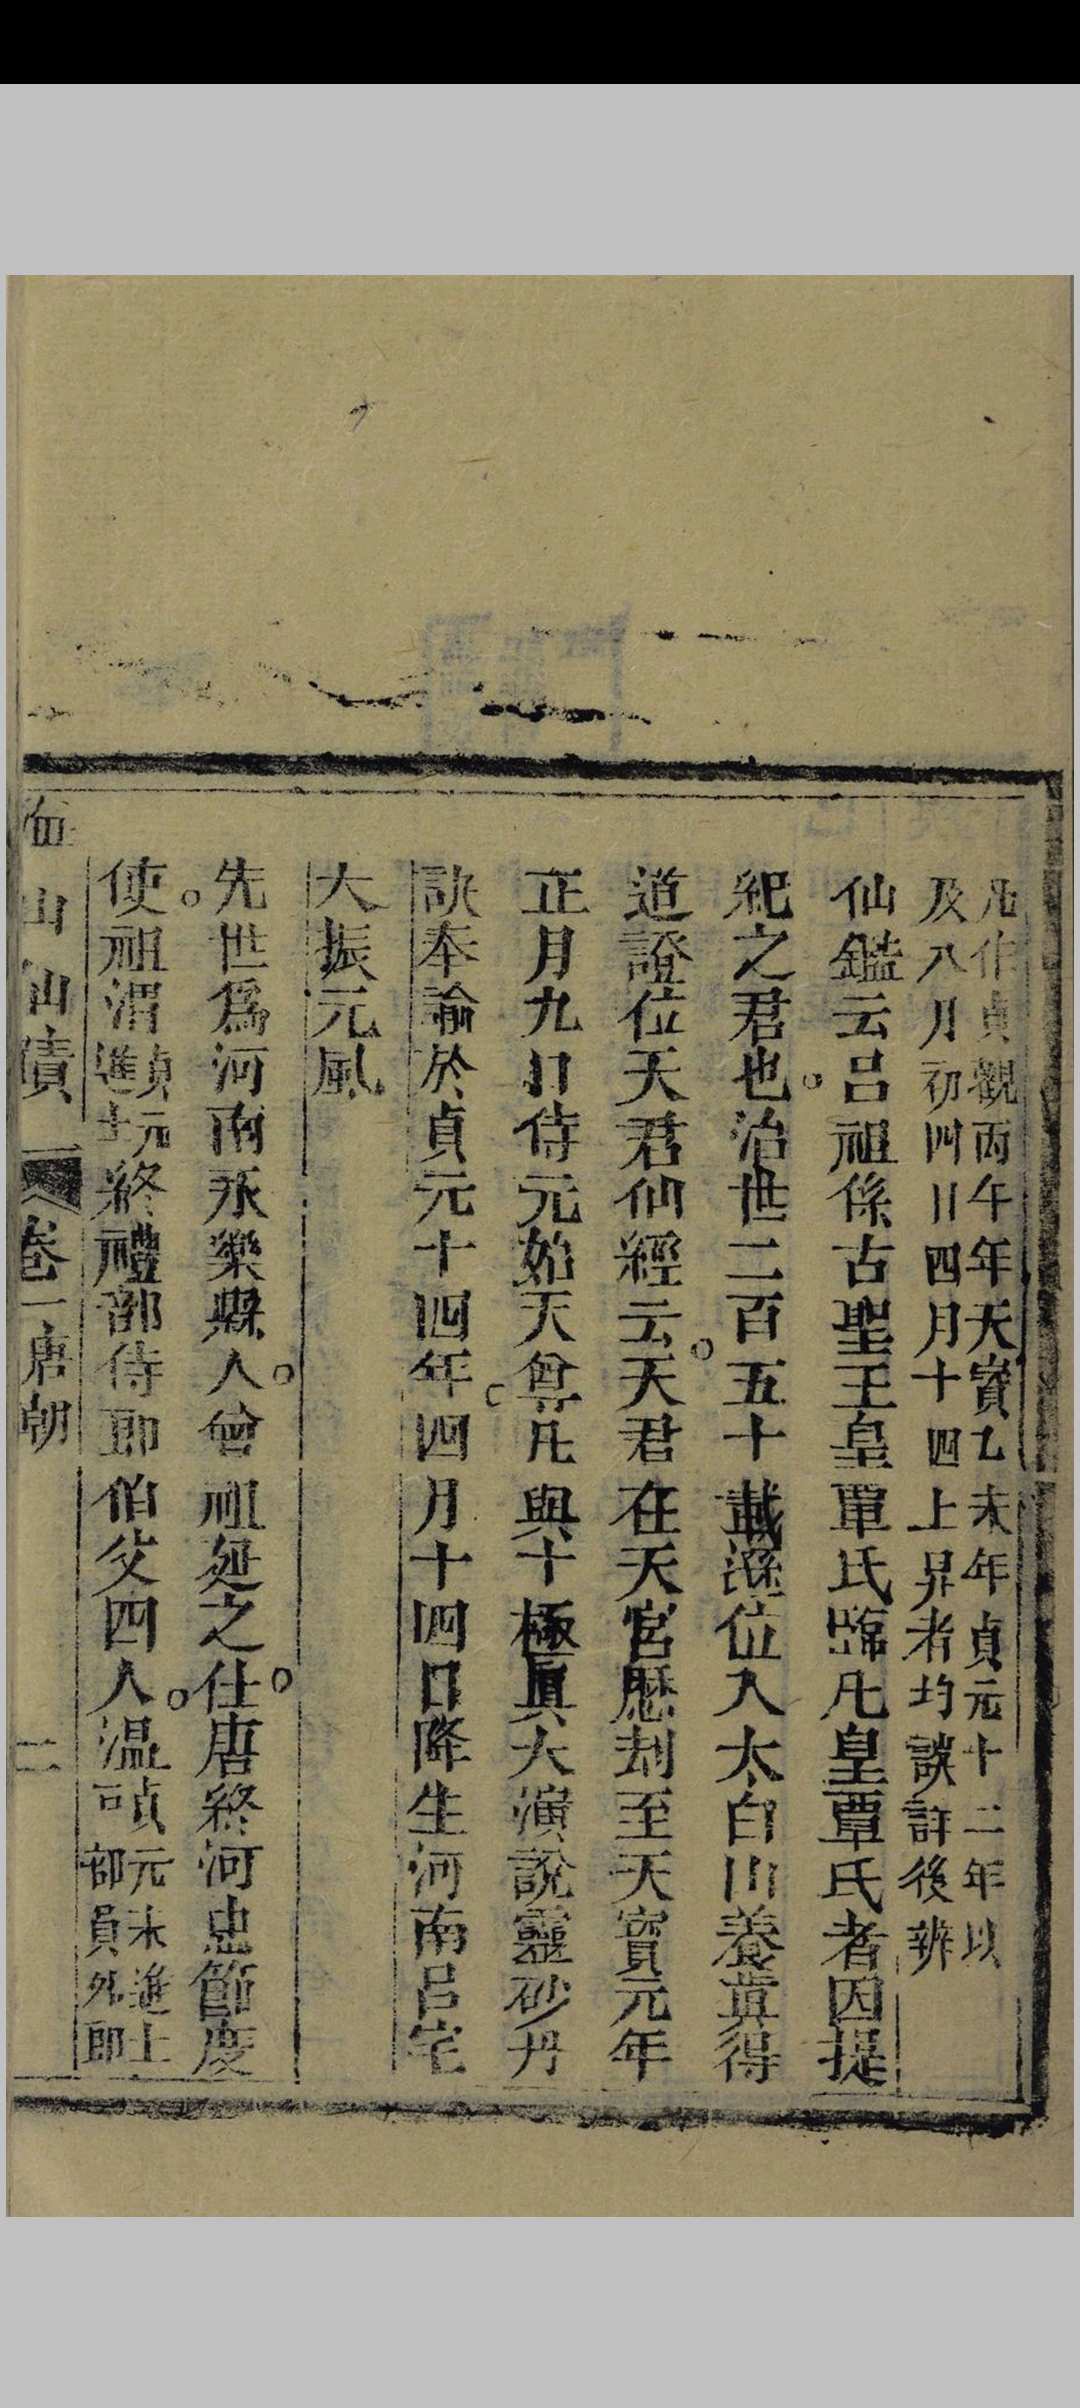 凡作貞觀丙午年天寶乙未年貞元十二年以
及八月初四日四月十四上昇者均誤詳後辨
仙鑑云呂祖係古聖王皇覃氏臨凡皇覃氏者因提
紀之君也治世二百五十載遜位入太白山養眞得
道證位天君仙經云天君在天宮歷刼至天寶元年
正月九日侍元始天尊凡與十極眞大演說靈砂丹
訣奉諭於貞元十四年四月十四日降生河南呂宅
大振元風
先世爲河南永樂縣人曾祖延之仕唐終河忠節度
使祖渭貞元進士終禮部侍郎伯父四人温貞元末進士部員外郎
山 仙蹟 卷一唐朝 二